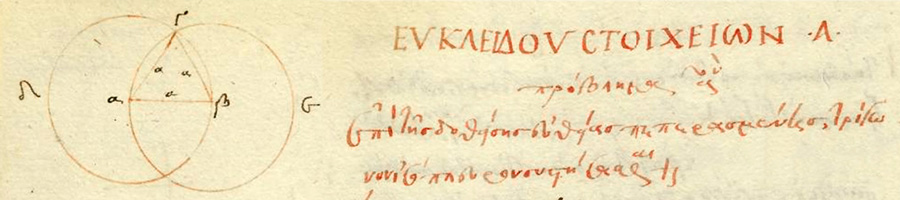 γ
δ α β ε
α α
α
ΕΥΚΛΕΙΔΟΥ ϹΤΟΙΧΕΙΩΝ ·Α·
πρόβλημα α
ἐπὶ τῆς δοθείσης εὐθείας πεπερασμένης τρίγω
νον ἰσόπλευρον συστήσασθαι